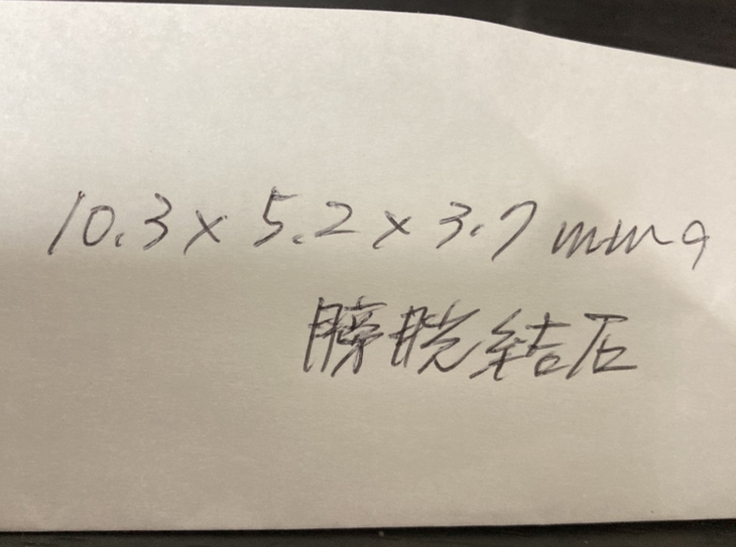 10.3×5.2×3.7mmの
膀胱結石